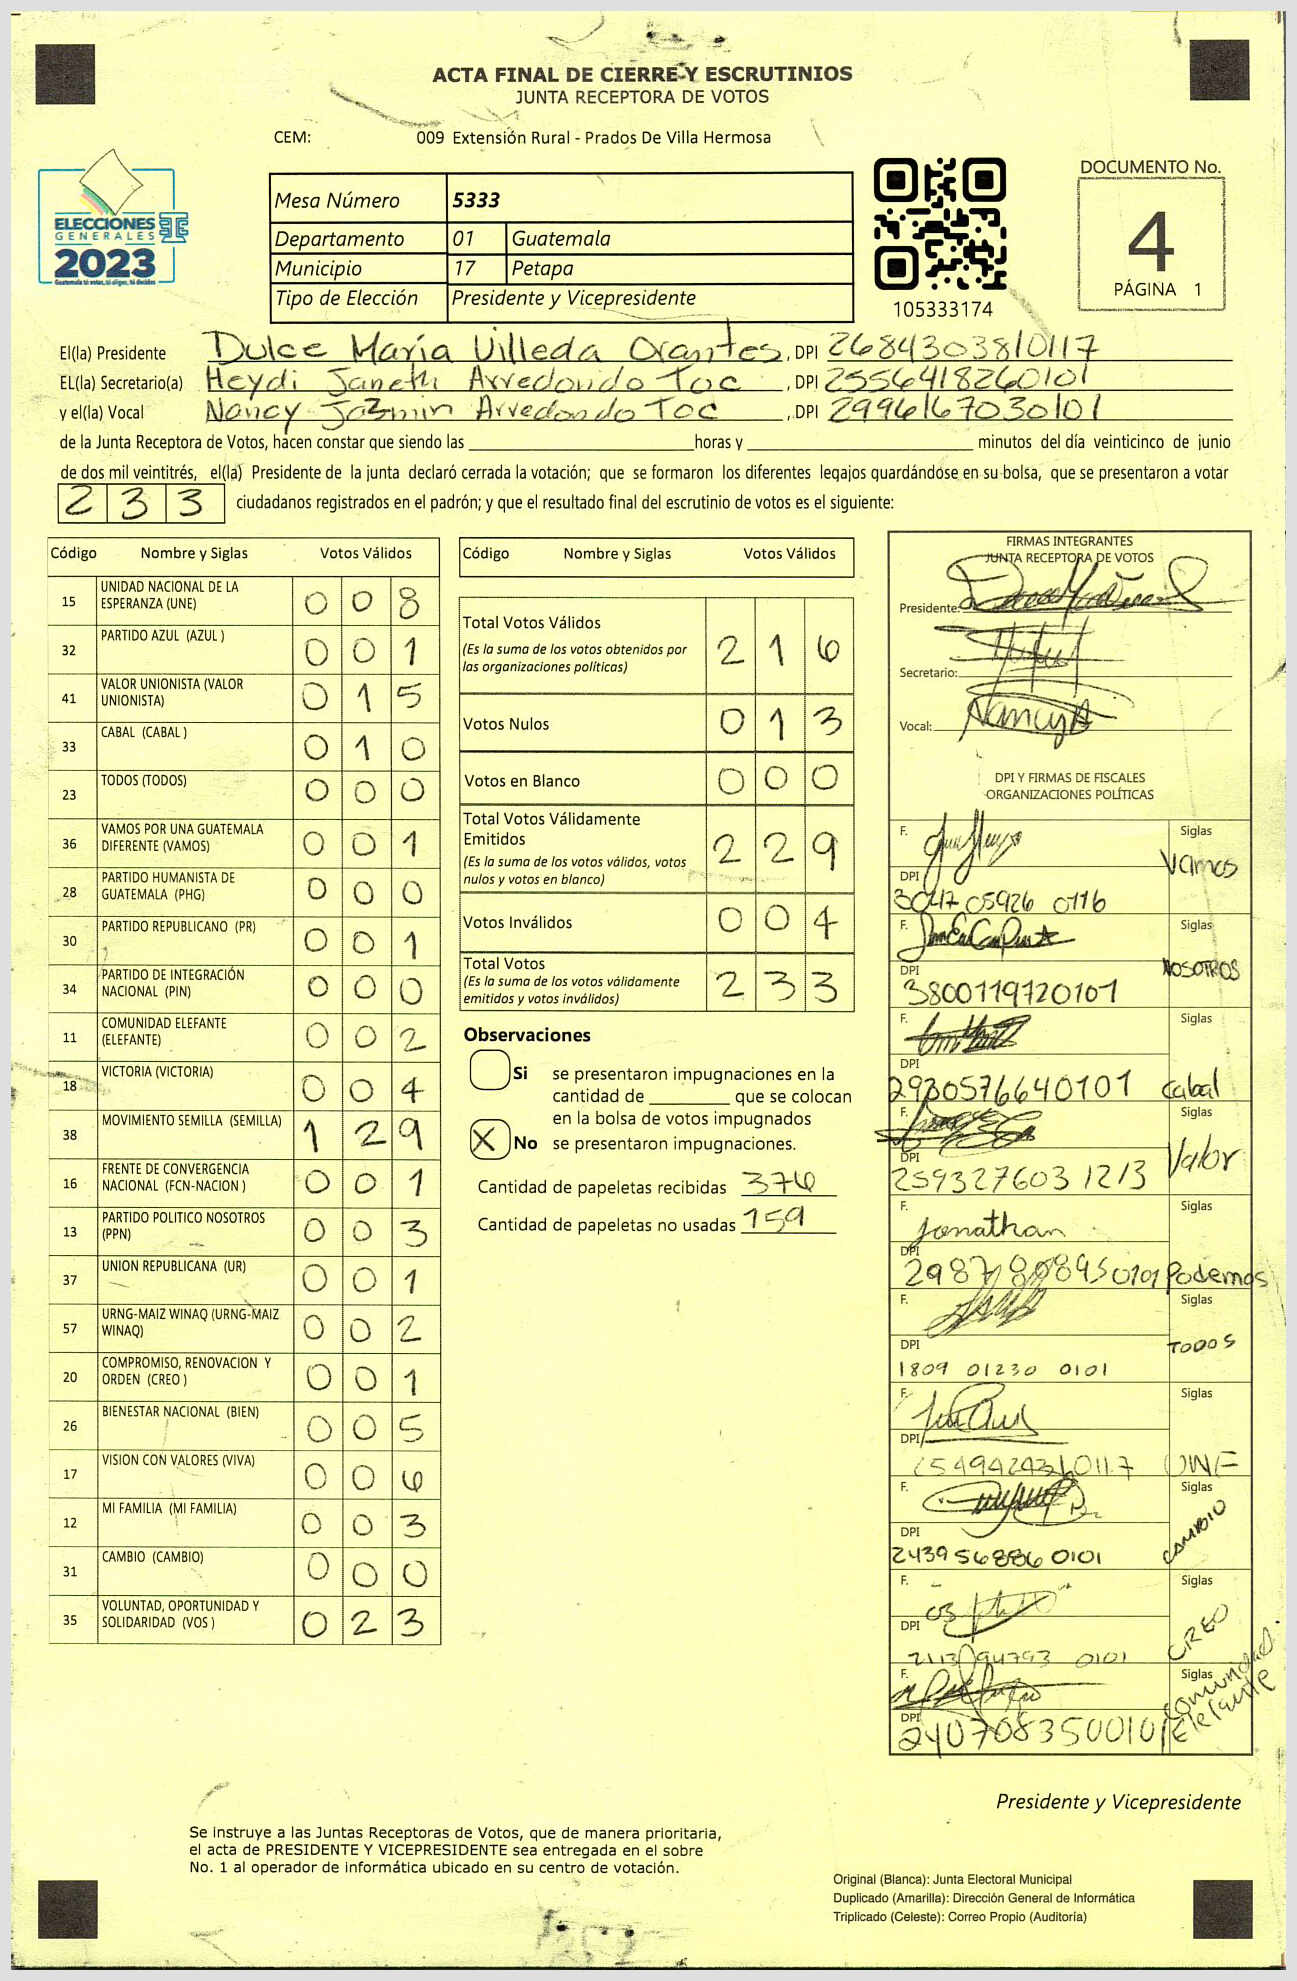 ACTA FINAL DE CIERRE Y ESCRUTINIOS
JUNTA RECEPTORA DE VOTOS
CEM: 009 Extensión Rural - Prados De Villa Hermosa
ELECCIONES
GENERALES
2023
Guatemala tú votas, tú eliges, tú decides
Mesa Número 5333
Departamento 01 Guatemala
Municipio 17 Petapa
Tipo de Elección Presidente y Vicepresidente
105333174
DOCUMENTO No.
4
PÁGINA 1
El(la) Presidente Dulce María Villeda Orantes, DPI 2684303810117
EL(la) Secretario(a) Heydi Janeth Arredondo Toc, DPI 2556418260101
y el(la) Vocal Nancy Jazmin Arredondo Toc, DPI 2996167030101
de la Junta Receptora de Votos, hacen constar que siendo las horas y minutos del día veinticinco de junio
de dos mil veintitrés, el(la) Presidente de la junta declaró cerrada la votación; que se formaron los diferentes legajos quardándose en su bolsa, que se presentaron a votar
233 ciudadanos registrados en el padrón; y que el resultado final del escrutinio de votos es el siguiente:
Código Nombre y Siglas Votos Válidos
15 UNIDAD NACIONAL DE LA ESPERANZA (UNE) 0 0 8
32 PARTIDO AZUL (AZUL ) 0 0 1
41 VALOR UNIONISTA (VALOR UNIONISTA) 0 1 5
33 CABAL (CABAL ) 0 1 0
23 TODOS (TODOS) 0 0 0
36 VAMOS POR UNA GUATEMALA DIFERENTE (VAMOS) 0 0 1
28 PARTIDO HUMANISTA DE GUATEMALA (PHG) 0 0 0
30 PARTIDO REPUBLICANO (PR) 0 0 1
34 PARTIDO DE INTEGRACIÓN NACIONAL (PIN) 0 0 0
11 COMUNIDAD ELEFANTE (ELEFANTE) 0 0 2
18 VICTORIA (VICTORIA) 0 0 4
38 MOVIMIENTO SEMILLA (SEMILLA) 1 2 9
16 FRENTE DE CONVERGENCIA NACIONAL (FCN-NACION ) 0 0 1
13 PARTIDO POLITICO NOSOTROS (PPN) 0 0 3
37 UNION REPUBLICANA (UR) 0 0 1
57 URNG-MAIZ WINAQ (URNG-MAIZ WINAQ) 0 0 2
20 COMPROMISO, RENOVACION Y ORDEN (CREO ) 0 0 1
26 BIENESTAR NACIONAL (BIEN) 0 0 5
17 VISION CON VALORES (VIVA) 0 0 6
12 MI FAMILIA (MI FAMILIA) 0 0 3
31 CAMBIO (CAMBIO) 0 0 0
35 VOLUNTAD, OPORTUNIDAD Y SOLIDARIDAD (VOS ) 0 2 3
Código Nombre y Siglas Votos Válidos
Total Votos Válidos 2 1 6
(Es la suma de los votos obtenidos por
las organizaciones políticas)
Votos Nulos 0 1 3
Votos en Blanco 0 0 0
Total Votos Válidamente
Emitidos 2 2 9
(Es la suma de los votos válidos, votos
nulos y votos en blanco)
Votos Inválidos 0 0 4
Total Votos 2 3 3
(Es la suma de los votos válidamente
emitidos y votos inválidos)
Observaciones
Si se presentaron impugnaciones en la
cantidad de que se colocan
en la bolsa de votos impugnados
X No se presentaron impugnaciones.
Cantidad de papeletas recibidas 376
Cantidad de papeletas no usadas 159
FIRMAS INTEGRANTES
JUNTA RECEPTORA DE VOTOS
Presidente:
Secretario:
Vocal: Nancy A
DPI Y FIRMAS DE FISCALES
ORGANIZACIONES POLÍTICAS
F. Siglas
Vamos
DPI
3047 05926 0116
F. Siglas
NOSOTROS
DPI
3800119720101
F. Siglas
DPI
2930576640101 Cabal
F. Siglas
Valor
DPI
259327603 1213
F. Siglas
Jonathan
DPI
2987 80895 0101 Podemos
F. Siglas
TODOS
DPI
1809 01230 0101
F. Siglas
DPI
2549424310117 UNE
F. Siglas
CAMBIO
DPI
2439 56886 0101
F. Siglas
CREO
DPI
2113 94793 0101
F. Siglas
Comunidad
Elefante
DPI
2407083500101
Presidente y Vicepresidente
Se instruye a las Juntas Receptoras de Votos, que de manera prioritaria,
el acta de PRESIDENTE Y VICEPRESIDENTE sea entregada en el sobre
No. 1 al operador de informática ubicado en su centro de votación.
Original (Blanca): Junta Electoral Municipal
Duplicado (Amarilla): Dirección General de Informática
Triplicado (Celeste): Correo Propio (Auditoría)